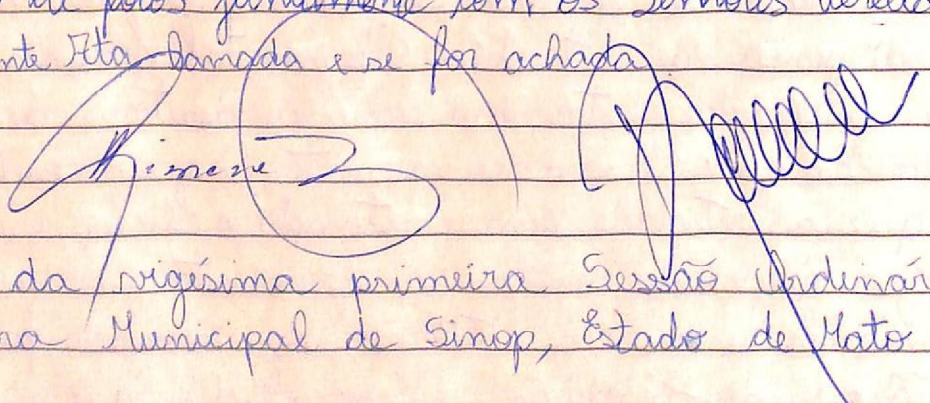 juntamente com os Senhores
nte Ata lavrada e se for achada
Simone
da vigésima primeira Sessão Ordinár
ra Municipal de Sinop, Estado de Mato